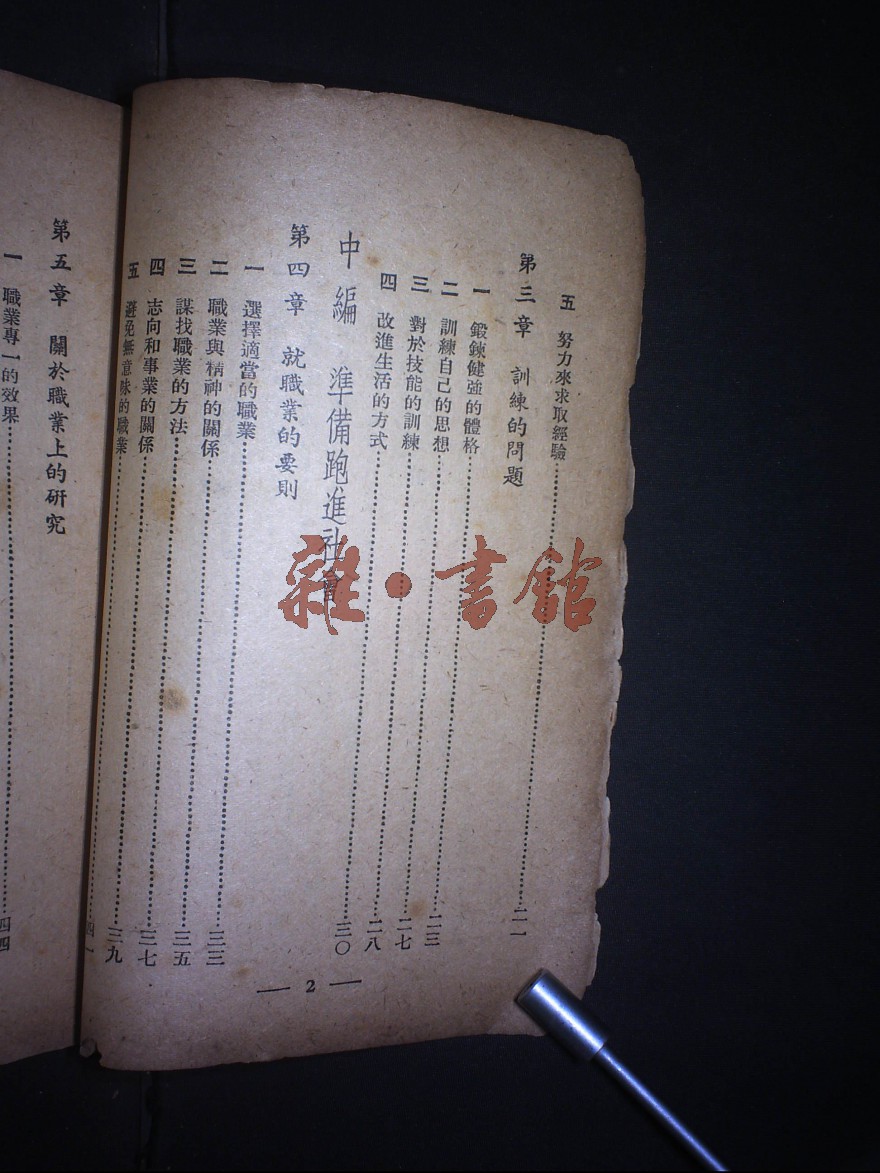 五 努力來求取經驗……二一
第三章 訓練的問題
一 鍛鍊健強的體格……二三
二 訓練自己的思想……二七
三 對於技能的訓練……二八
四 改進生活的方式……三〇
中編 準備跑進社會
第四章 就職業的要則
一 選擇適當的職業……三三
二 職業與精神的關係……三五
三 謀找職業的方法……三七
四 志向和事業的關係……三九
五 避免無意味的職業……四一
— 2 —
第五章 關於職業上的研究
一 職業專一的效果……四四
雜·書館